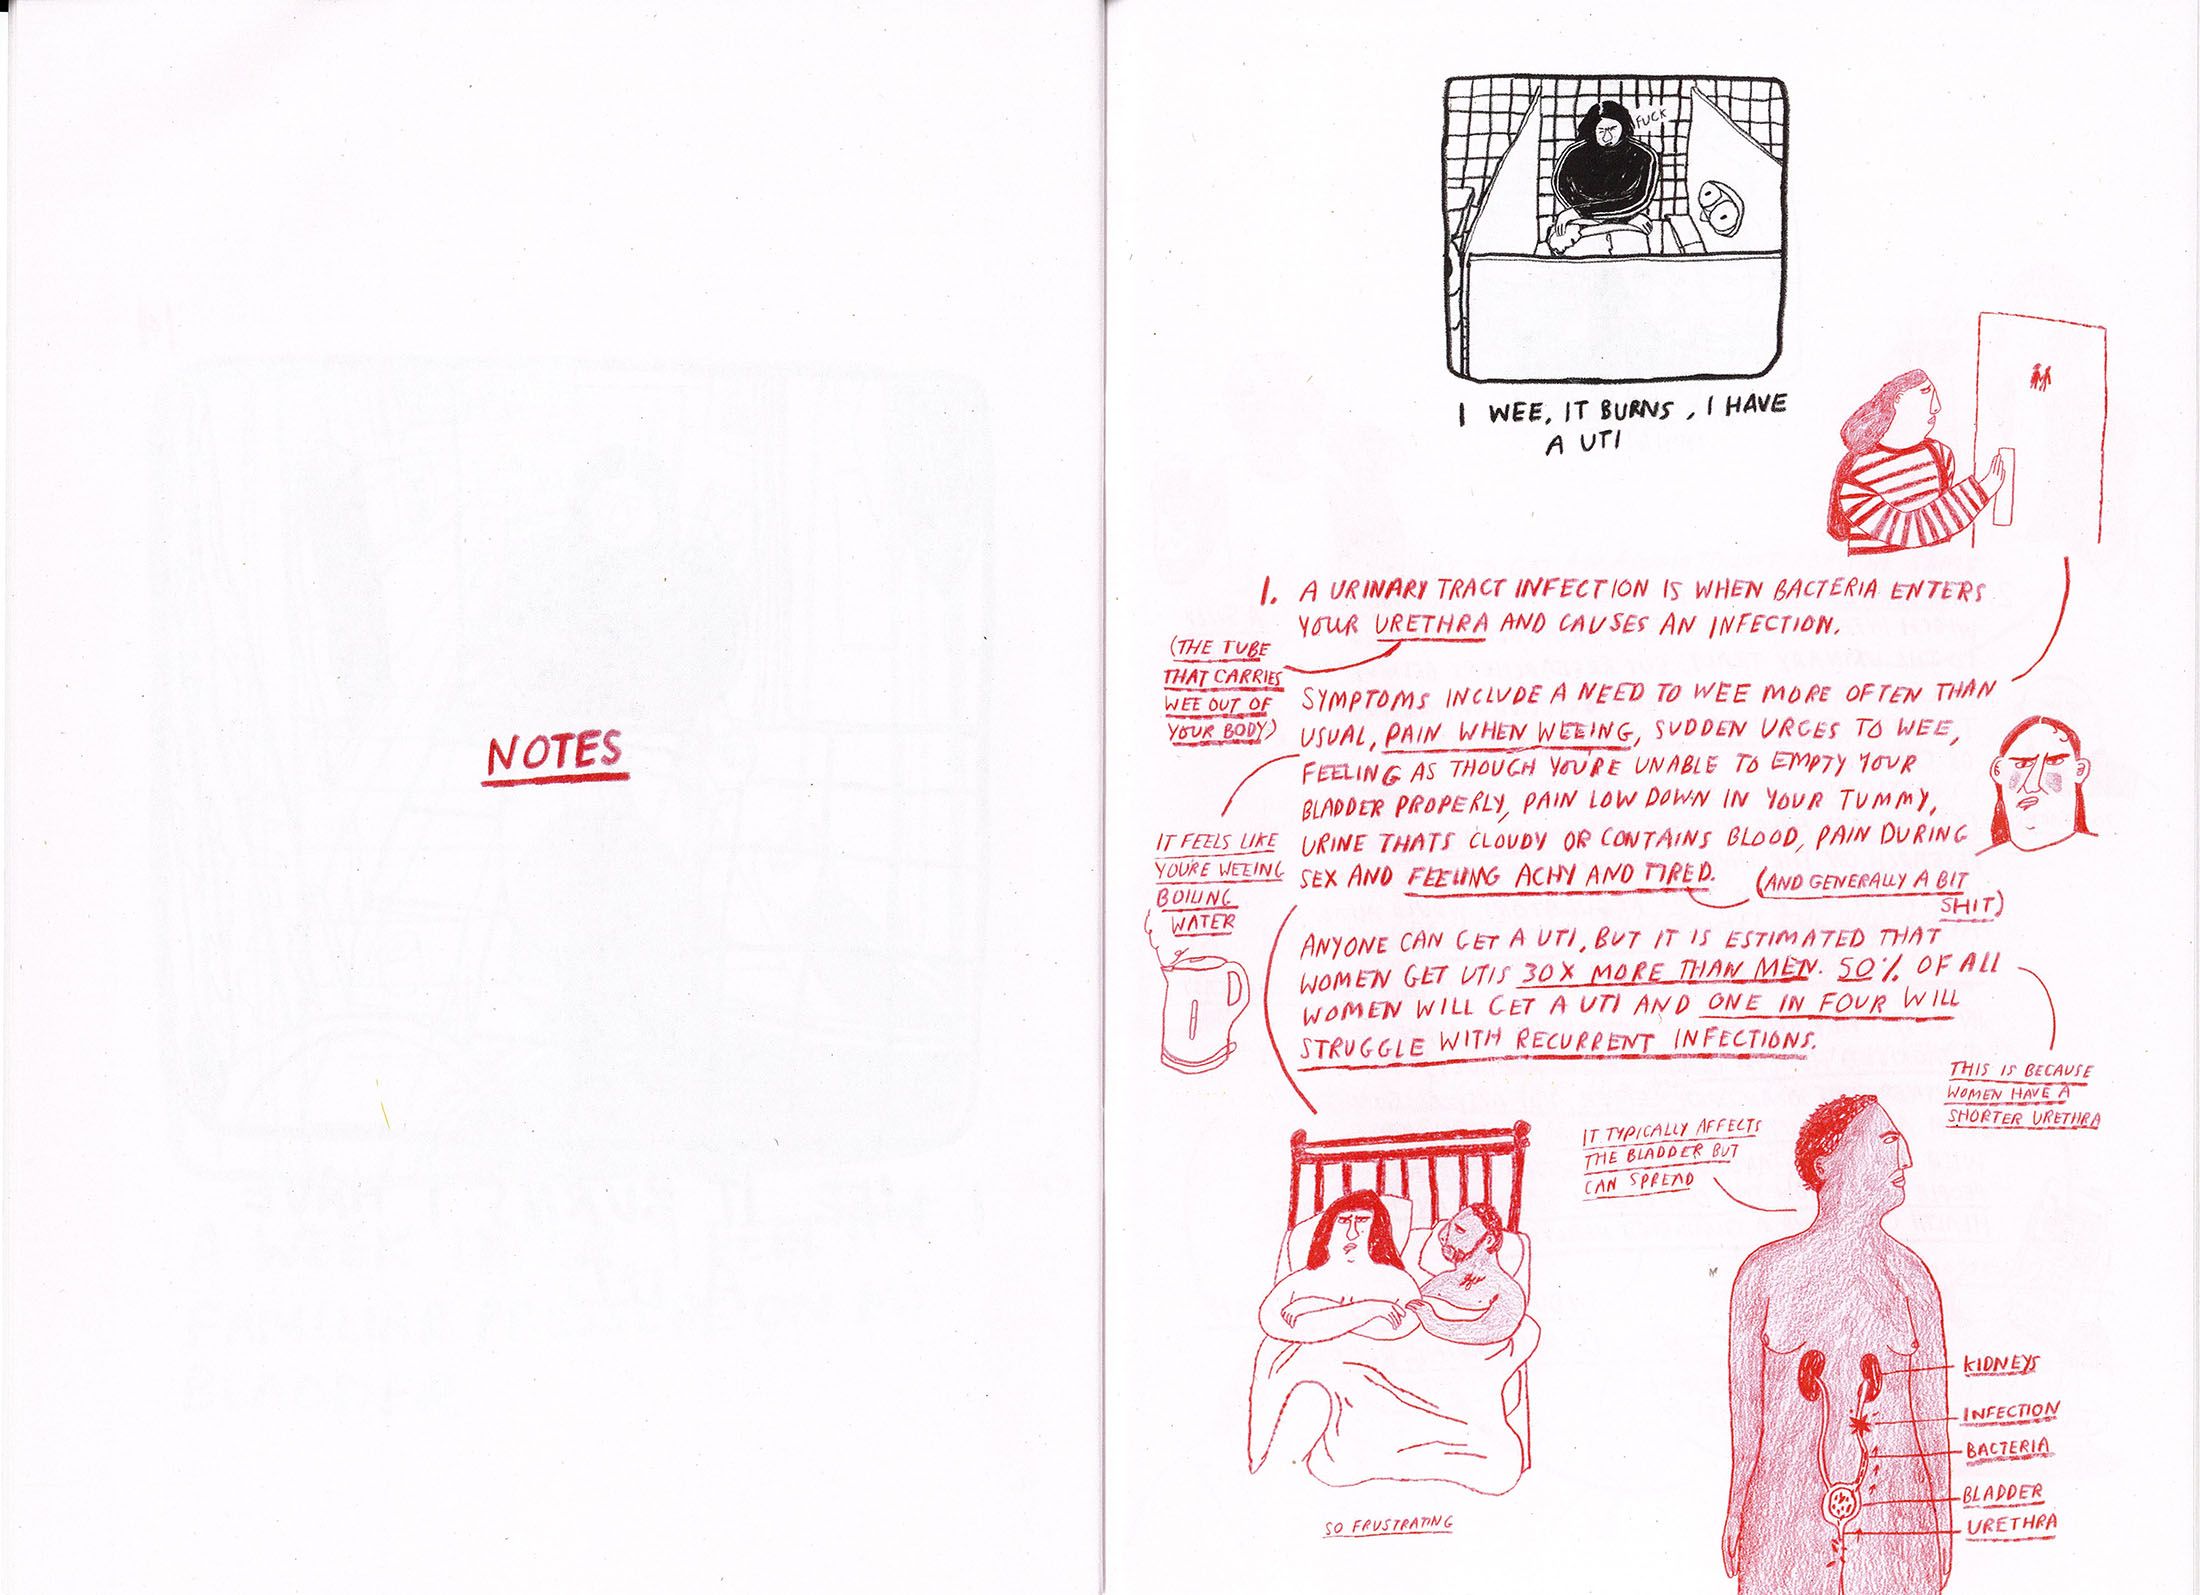 NOTES
FUCK
I WEE, IT BURNS, I HAVE
A UTI
1. A URINARY TRACT INFECTION IS WHEN BACTERIA ENTERS
YOUR URETHRA AND CAUSES AN INFECTION.
(THE TUBE
THAT CARRIES
WEE OUT OF
YOUR BODY)
SYMPTOMS INCLUDE A NEED TO WEE MORE OFTEN THAN
USUAL, PAIN WHEN WEEING, SUDDEN URGES TO WEE,
FEELING AS THOUGH YOU'RE UNABLE TO EMPTY YOUR
BLADDER PROPERLY, PAIN LOW DOWN IN YOUR TUMMY,
URINE THATS CLOUDY OR CONTAINS BLOOD, PAIN DURING
SEX AND FEELING ACHY AND TIRED.
(AND GENERALLY A BIT
SHIT)
IT FEELS LIKE
YOU'RE WEEING
BOILING
WATER
ANYONE CAN GET A UTI, BUT IT IS ESTIMATED THAT
WOMEN GET UTIS 30X MORE THAN MEN. 50% OF ALL
WOMEN WILL GET A UTI AND ONE IN FOUR WILL
STRUGGLE WITH RECURRENT INFECTIONS.
THIS IS BECAUSE
WOMEN HAVE A
SHORTER URETHRA
IT TYPICALLY AFFECTS
THE BLADDER BUT
CAN SPREAD
KIDNEYS
INFECTION
BACTERIA
BLADDER
URETHRA
SO FRUSTRATING